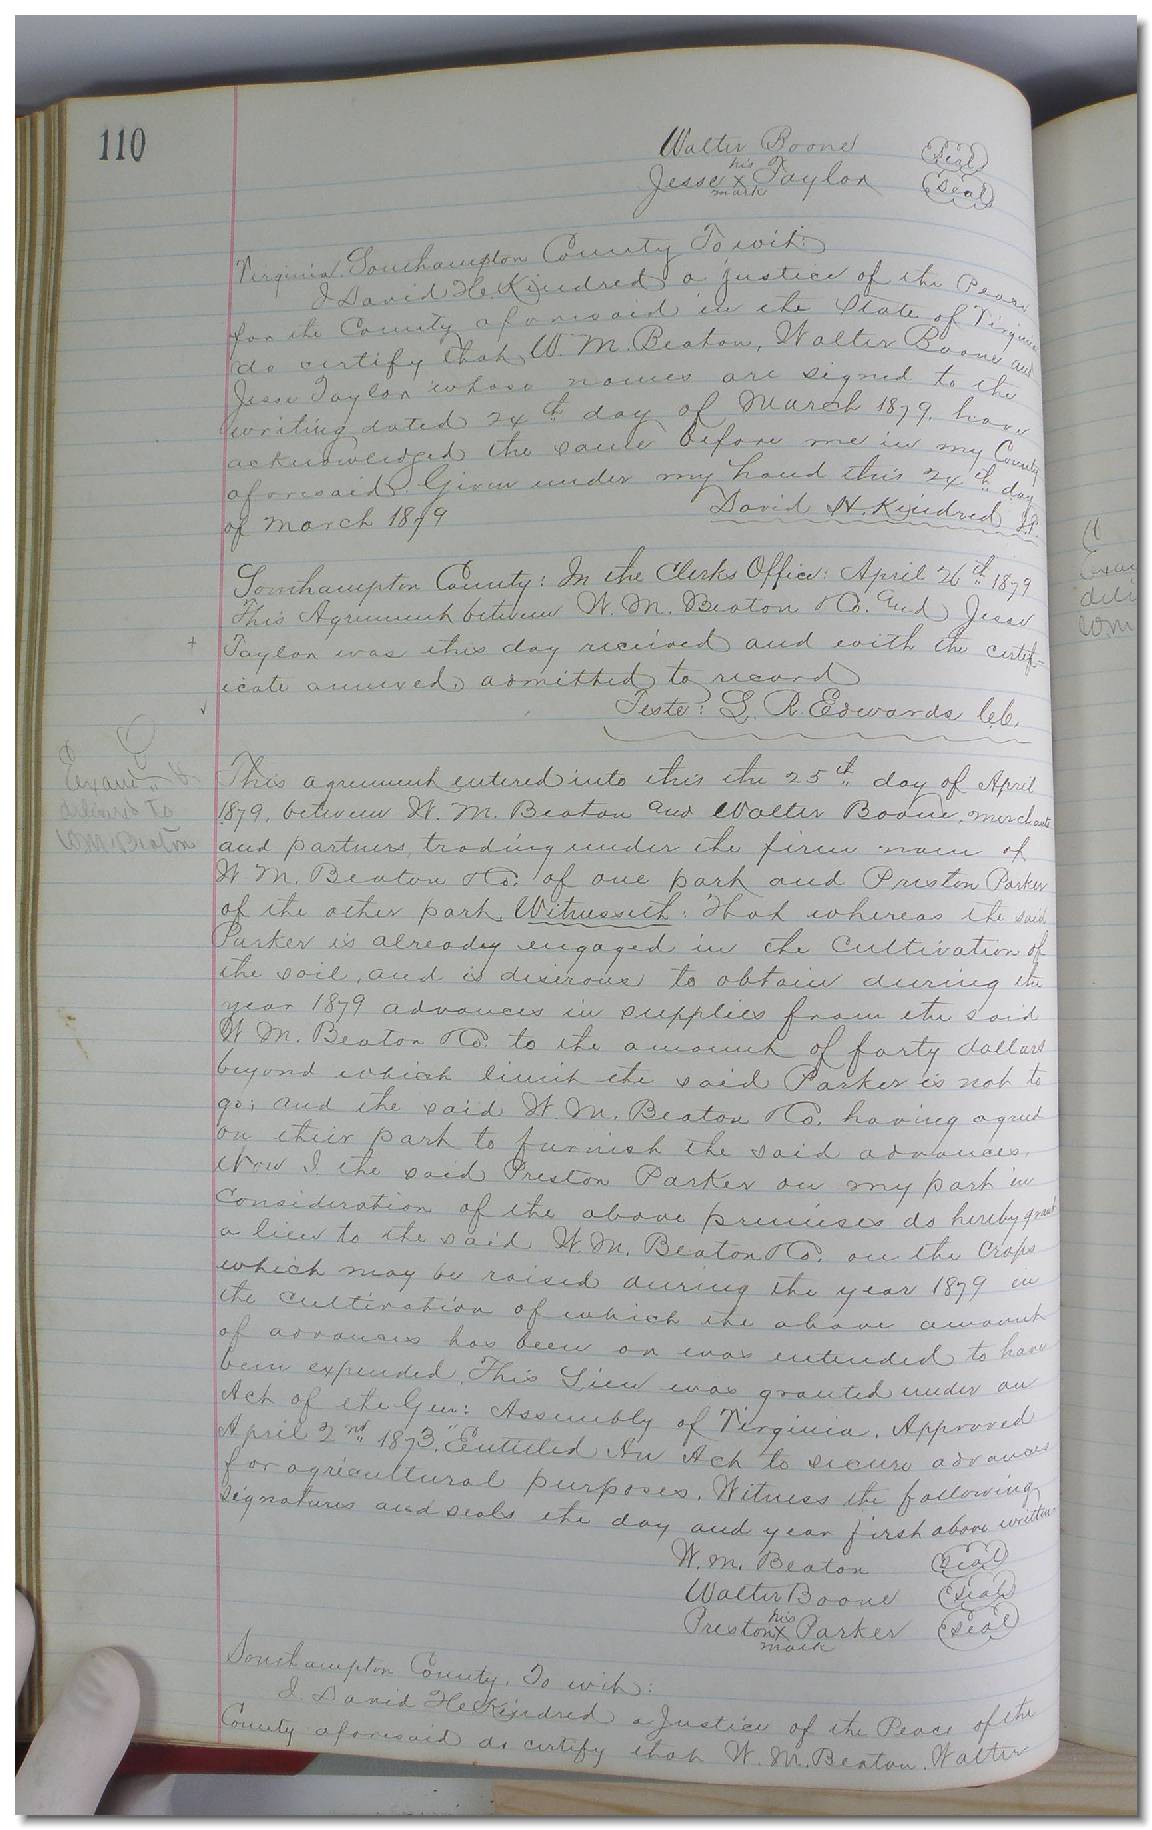 110
Walter Boone (Seal)
his
Jesse x Taylor (Seal)
mark
Virginia. Southampton County To wit:
I David H. Kindred a justice of the Peace
for the County aforesaid in the State of Virginia
do certify that W. M. Beaton, Walter Boone and
Jesse Taylor whose names are signed to the
writing dated 24th day of March 1879. have
acknowledged the same before me in my County
aforesaid. Given under my hand this 24th day
of March 1879 David H. Kindred J.P.
Southampton County: In the Clerks Office: April 26th 1879
This Agreement between W. M. Beaton & Co. and Jesse
+ Taylor was this day received and with the certif-
icate annexed, admitted to record
Teste: L. R. Edwards C.C.
This agreement entered into this the 25th day of April
1879. between W. M. Beaton and Walter Boone, merchants
and partners, trading under the firm name of
W M. Beaton & Co. of one part and Preston Parker
of the other part Witnesseth: That whereas the said
Parker is already engaged in the cultivation of
the soil, and is desirous to obtain during the
year 1879 advances in supplies from the said
W M. Beaton & Co. to the amount of forty dollars
beyond which limit the said Parker is not to
go; and the said W M. Beaton & Co. having agreed
on their part to furnish the said advances.
Now I the said Preston Parker on my part in
consideration of the above premises do hereby grant
a lien to the said W. M. Beaton & Co. on the crops
which may be raised during the year 1879 in
the cultivation of which the above amount
of advances has been or was intended to have
been expended. This Lien was granted under an
Act of the Gen: Assembly of Virginia. Approved
April 2nd 1873. "Entitled An Act to secure advances
for agricultural purposes. Witness the following
signatures and seals the day and year first above written
W. M. Beaton (Seal)
Walter Boone (Seal)
his
Preston x Parker (Seal)
mark
Southampton County. To wit:
I. David H. Kindred a Justice of the Peace of the
County aforesaid do certify that W. M. Beaton. Walter
Examd &
delivered to
W.M. Beaton